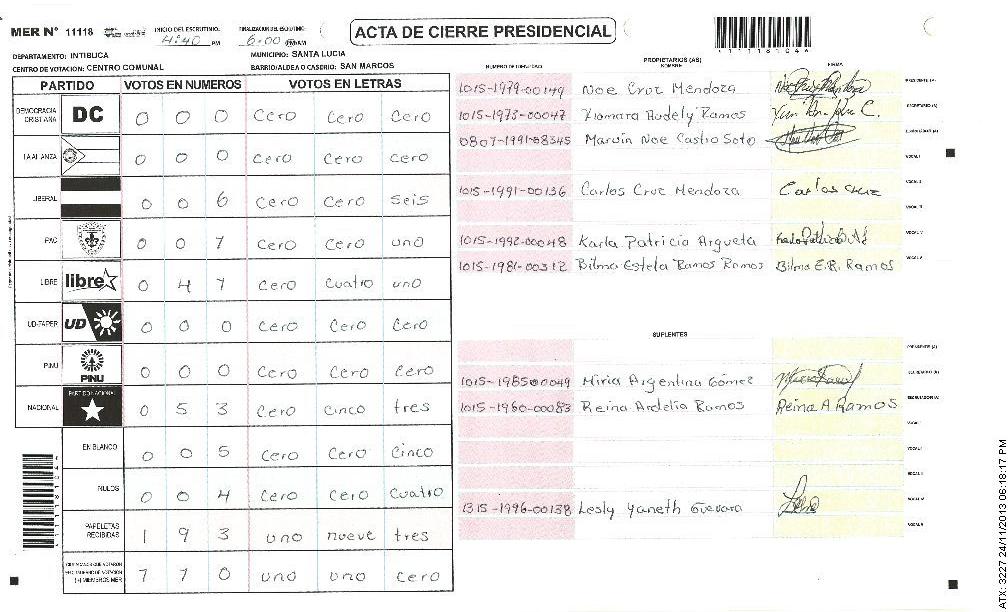 MER Nº 11118 INICIO DEL ESCRUTINIO: 4:40 PM FINALIZACION DEL ESCRUTINIO: 6:00 PM/AM
ACTA DE CIERRE PRESIDENCIAL
1111181044
DEPARTAMENTO: INTIBUCA MUNICIPIO: SANTA LUCIA
CENTRO DE VOTACION: CENTRO COMUNAL BARRIO/ALDEA O CASERIO: SAN MARCOS
PARTIDO VOTOS EN NUMEROS VOTOS EN LETRAS
DEMOCRACIA CRISTIANA DC 0 0 0 Cero Cero Cero
LA ALIANZA 0 0 0 Cero Cero cero
LIBERAL 0 0 6 Cero Cero seis
PAC 0 0 7 Cero Cero uno
LIBRE libre 0 4 7 Cero cuatro uno
UD-FAPER UD 0 0 0 Cero Cero Cero
PINU PINU 0 0 0 Cero Cero Cero
NACIONAL PARTIDO NACIONAL 0 5 3 Cero cinco tres
EN BLANCO 0 0 5 Cero Cero Cinco
NULOS 0 0 4 Cero Cero Cuatro
PAPELETAS RECIBIDAS 1 9 3 uno nueve tres
CIUDADANOS QUE VOTARON S/ CUADERNO DE VOTACIÓN (+) MIEMBROS MER 7 7 0 uno uno cero
PROPIETARIOS (AS)
NUMERO DE IDENTIDAD NOMBRE FIRMA
1015-1979-00149 Noe Cruz Mendoza PRESIDENTE (A)
1015-1973-00047 Xiomara Audely Ramos SECRETARIO (A)
0807-1991-08345 Marvin Noe Castro Soto ESCRUTADOR (A)
VOCAL I
1015-1991-00136 Carlos Cruz Mendoza Carlos cruz VOCAL II
VOCAL III
1015-1992-00048 Karla Patricia Argueta VOCAL IV
1015-1981-00312 Bilma Estela Ramos Ramos Bilma E.R. Ramos VOCAL V
SUPLENTES
PRESIDENTE (A)
1015-1985-00049 Miria Argentina Gómez SECRETARIO (A)
1015-1960-00083 Reina Ardelia Ramos Reina A Ramos ESCRUTADOR (A)
VOCAL I
VOCAL II
VOCAL III
1315-1996-00138 Lesly Yaneth Guevara VOCAL IV
VOCAL V
ATX: 3227 24/11/2013 06:18:17 PM